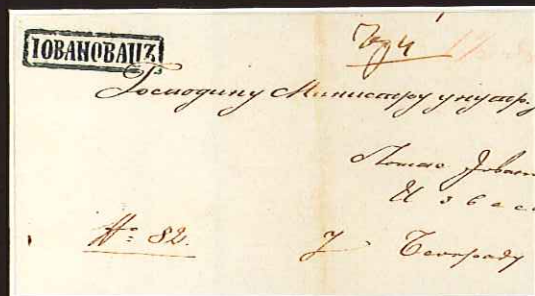 ІОВАНОВАЦЪ
Господину Министру унутр.
И з в е с
№: 82.
У Београду